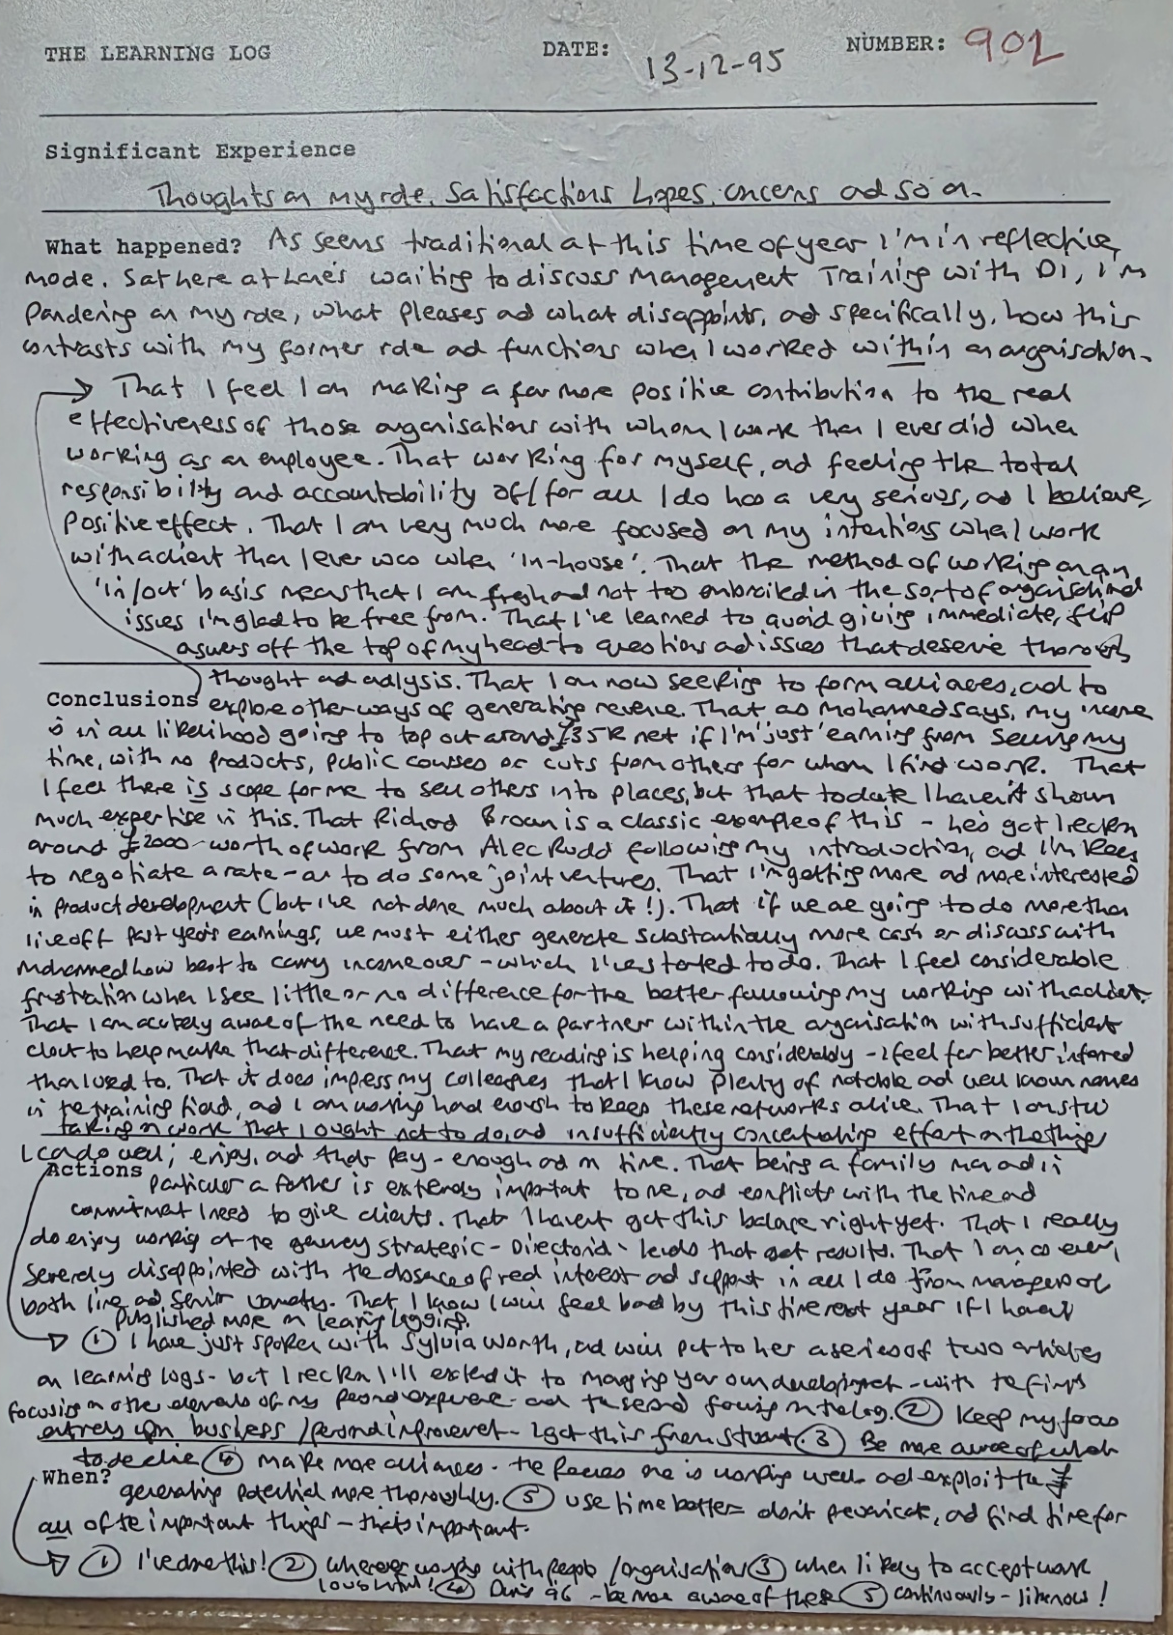 THE LEARNING LOG DATE: 13-12-95 NUMBER: 902
Significant Experience
Thoughts on my role, satisfactions, hopes, concerns and so on.
What happened? As seems traditional at this time of year I'm in reflective
mode. Sat here at Lane's waiting to discuss Management Training with DI, I'm
Pondering on my role, what pleases and what disappoints, and specifically, how this
contrasts with my former role and functions when I worked within an organisation.
→ That I feel I am making a far more positive contribution to the real
effectiveness of those organisations with whom I work than I ever did when
working as an employee. That working for myself, and feeling the total
responsibility and accountability of/for all I do has a very serious, and I believe,
Positive effect. That I am very much more focused on my intentions when I work
with a client than I ever was when 'in-house'. That the method of working on an
'in/out' basis means that I am fresh and not too embroiled in the sort of organisational
issues I'm glad to be free from. That I've learned to avoid giving immediate, flip
answers off the top of my head to questions and issues that deserve thorough
thought and analysis. That I am now seeking to form alliances, and to
Conclusions explore other ways of generating revenue. That as Mohammed says, my income
is in all likelihood going to top out around £35K net if I'm just earning from selling my
time, with no products, public courses or cuts from others for whom I find work. That
I feel there is scope for me to sell others into places, but that to date I haven't shown
much expertise in this. That Richard Brown is a classic example of this - he's got I reckon
around £2000 worth of work from Alec Rudd following my introduction, and I'm keen
to negotiate a rate - or to do some joint ventures. That I'm getting more and more interested
in product development (but I've not done much about it!). That if we are going to do more than
live off past year's earnings, we must either generate substantially more cash or discuss with
Mohammed how best to carry income over - which I've started to do. That I feel considerable
frustration when I see little or no difference for the better following my working with a client.
That I am acutely aware of the need to have a partner within the organisation with sufficient
clout to help make that difference. That my reading is helping considerably - I feel far better informed
than I used to. That it does impress my colleagues that I know plenty of notable and well known names
in the training field, and I am working hard enough to keep these networks alive. That I am still
taking on work that I ought not to do, and insufficiently concentrating effort on the things
I can do well; enjoy, and that pay - enough and on time. That being a family man and in
Actions particular a father is extremely important to me, and conflicts with the time and
commitment I need to give clients. That I haven't got this balance right yet. That I really
do enjoy working at the strategic - Directorial - levels that get results. That I am as ever,
severely disappointed with the absence of real interest and support in all I do from managers of
both line and senior variety. That I know I will feel bad by this time next year if I haven't
published more on learning logging.
→ ① I have just spoken with Sylvia Worth, and will put to her a series of two articles
on learning logs - but I reckon I'll extend it to managing your own development - with the first
focusing on other elements of my personal experience - and the second focusing on the log. ② Keep my focus
entirely upon business / personal improvement - I got this from Stuart ③ Be more aware of when
to decline ④ make more alliances - the one is working well and exploit the £
When? generating potential more thoroughly. ⑤ use time better - don't prevaricate, and find time for
all of the important things - that's important.
→ ① I've done this! ② wherever working with people / organisations ③ when likely to accept work
④ During 96 - be more aware of these ⑤ continuously - like now!